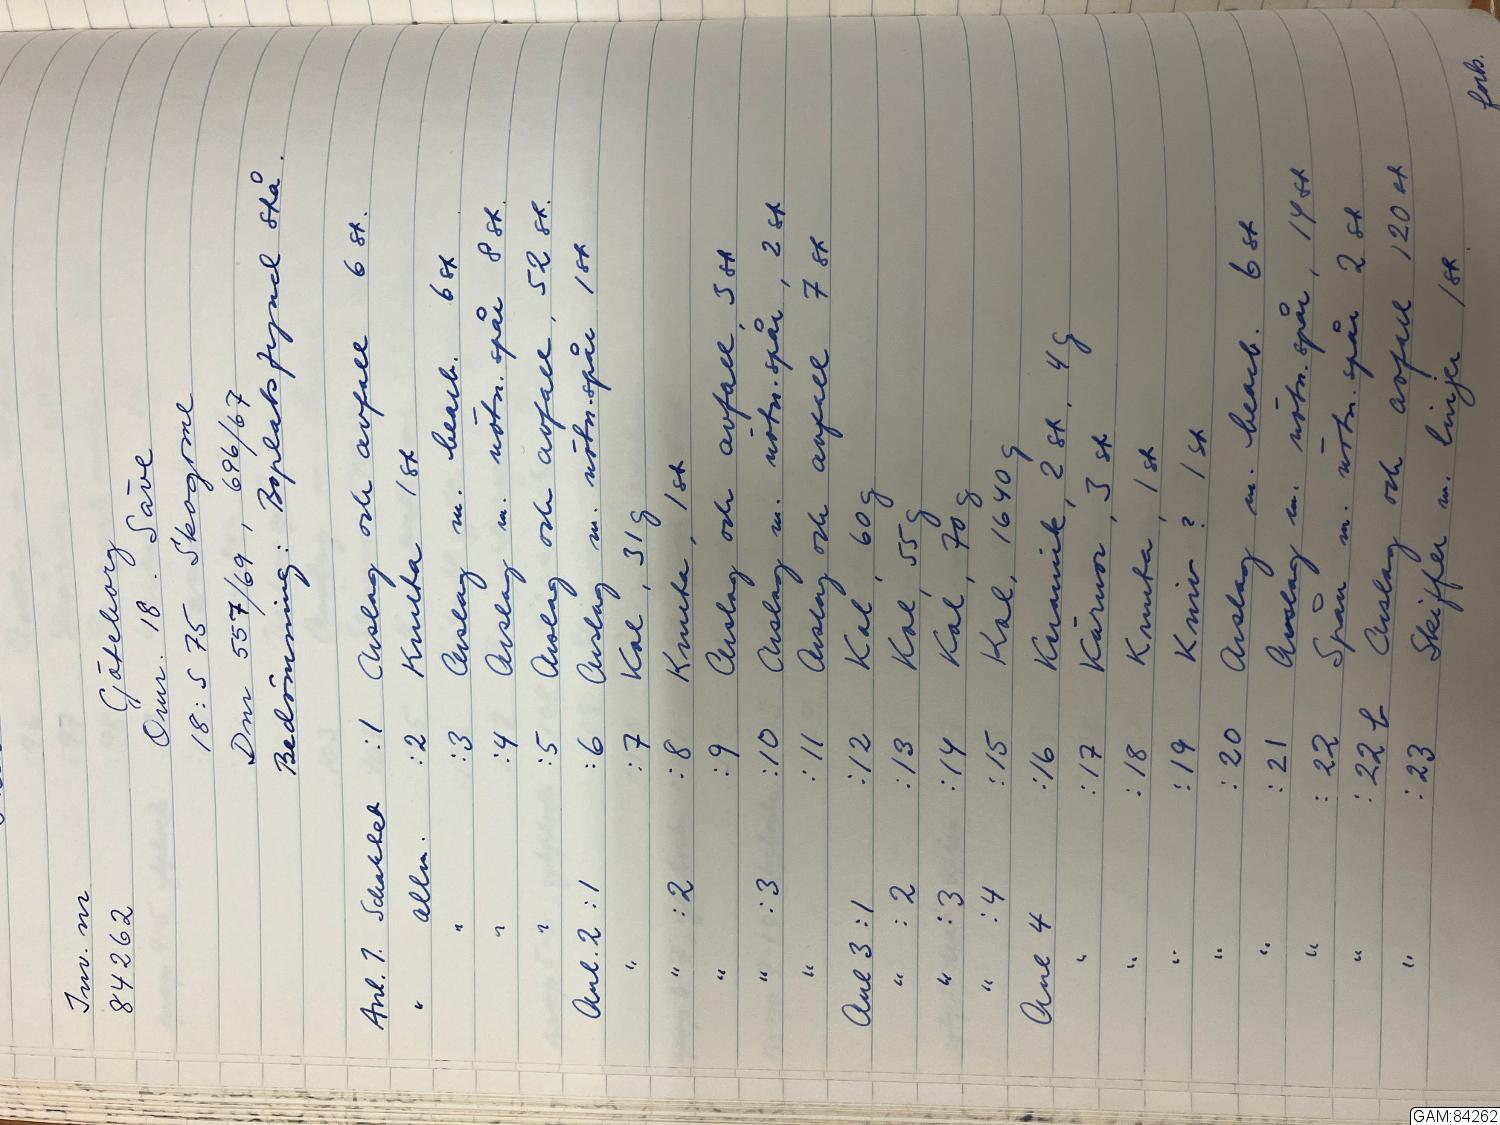 Inv. nr
84262 Göteborg
Omr. 18. Säve
18:S 75 Skogome
Dnr 557/69, 696/67
Bedömning: Boplatsfynd stå.
Anl. 1. Schaktet :1 Avslag och avfall 6 st.
" allm. :2 Knuta 1 st
" :3 Avslag m. bearb. 6 st
" :4 Avslag m. nötn.spår 8 st.
" :5 Avslag och avfall, 52 st.
Anl. 2 :1 :6 Avslag m. nötn.spår 1 st
" :7 Kol, 31 g
" :2 :8 Knuta, 1 st
" :9 Avslag och avfall, 3 st
" :3 :10 Avslag m. nötn.spår, 2 st
" :11 Avslag och avfall 7 st
Anl 3 :1 :12 Kol, 60 g
" :2 :13 Kol, 55 g
" :3 :14 Kol, 70 g
" :4 :15 Kol, 1640 g
Anl 4 :16 Keramik, 2 st, 4 g
" :17 Kärnor, 3 st
" :18 Knuta, 1 st
" :19 Kniv? 1 st
" :20 Avslag m. bearb. 6 st
" :21 Avslag m. nötn.spår, 14 st
" :22 Spån m. nötn.spår 2 st
" :22 b Avslag och avfall 120 st
" :23 Skiffer m. linjer 1 st.
forts.
GAM:84262